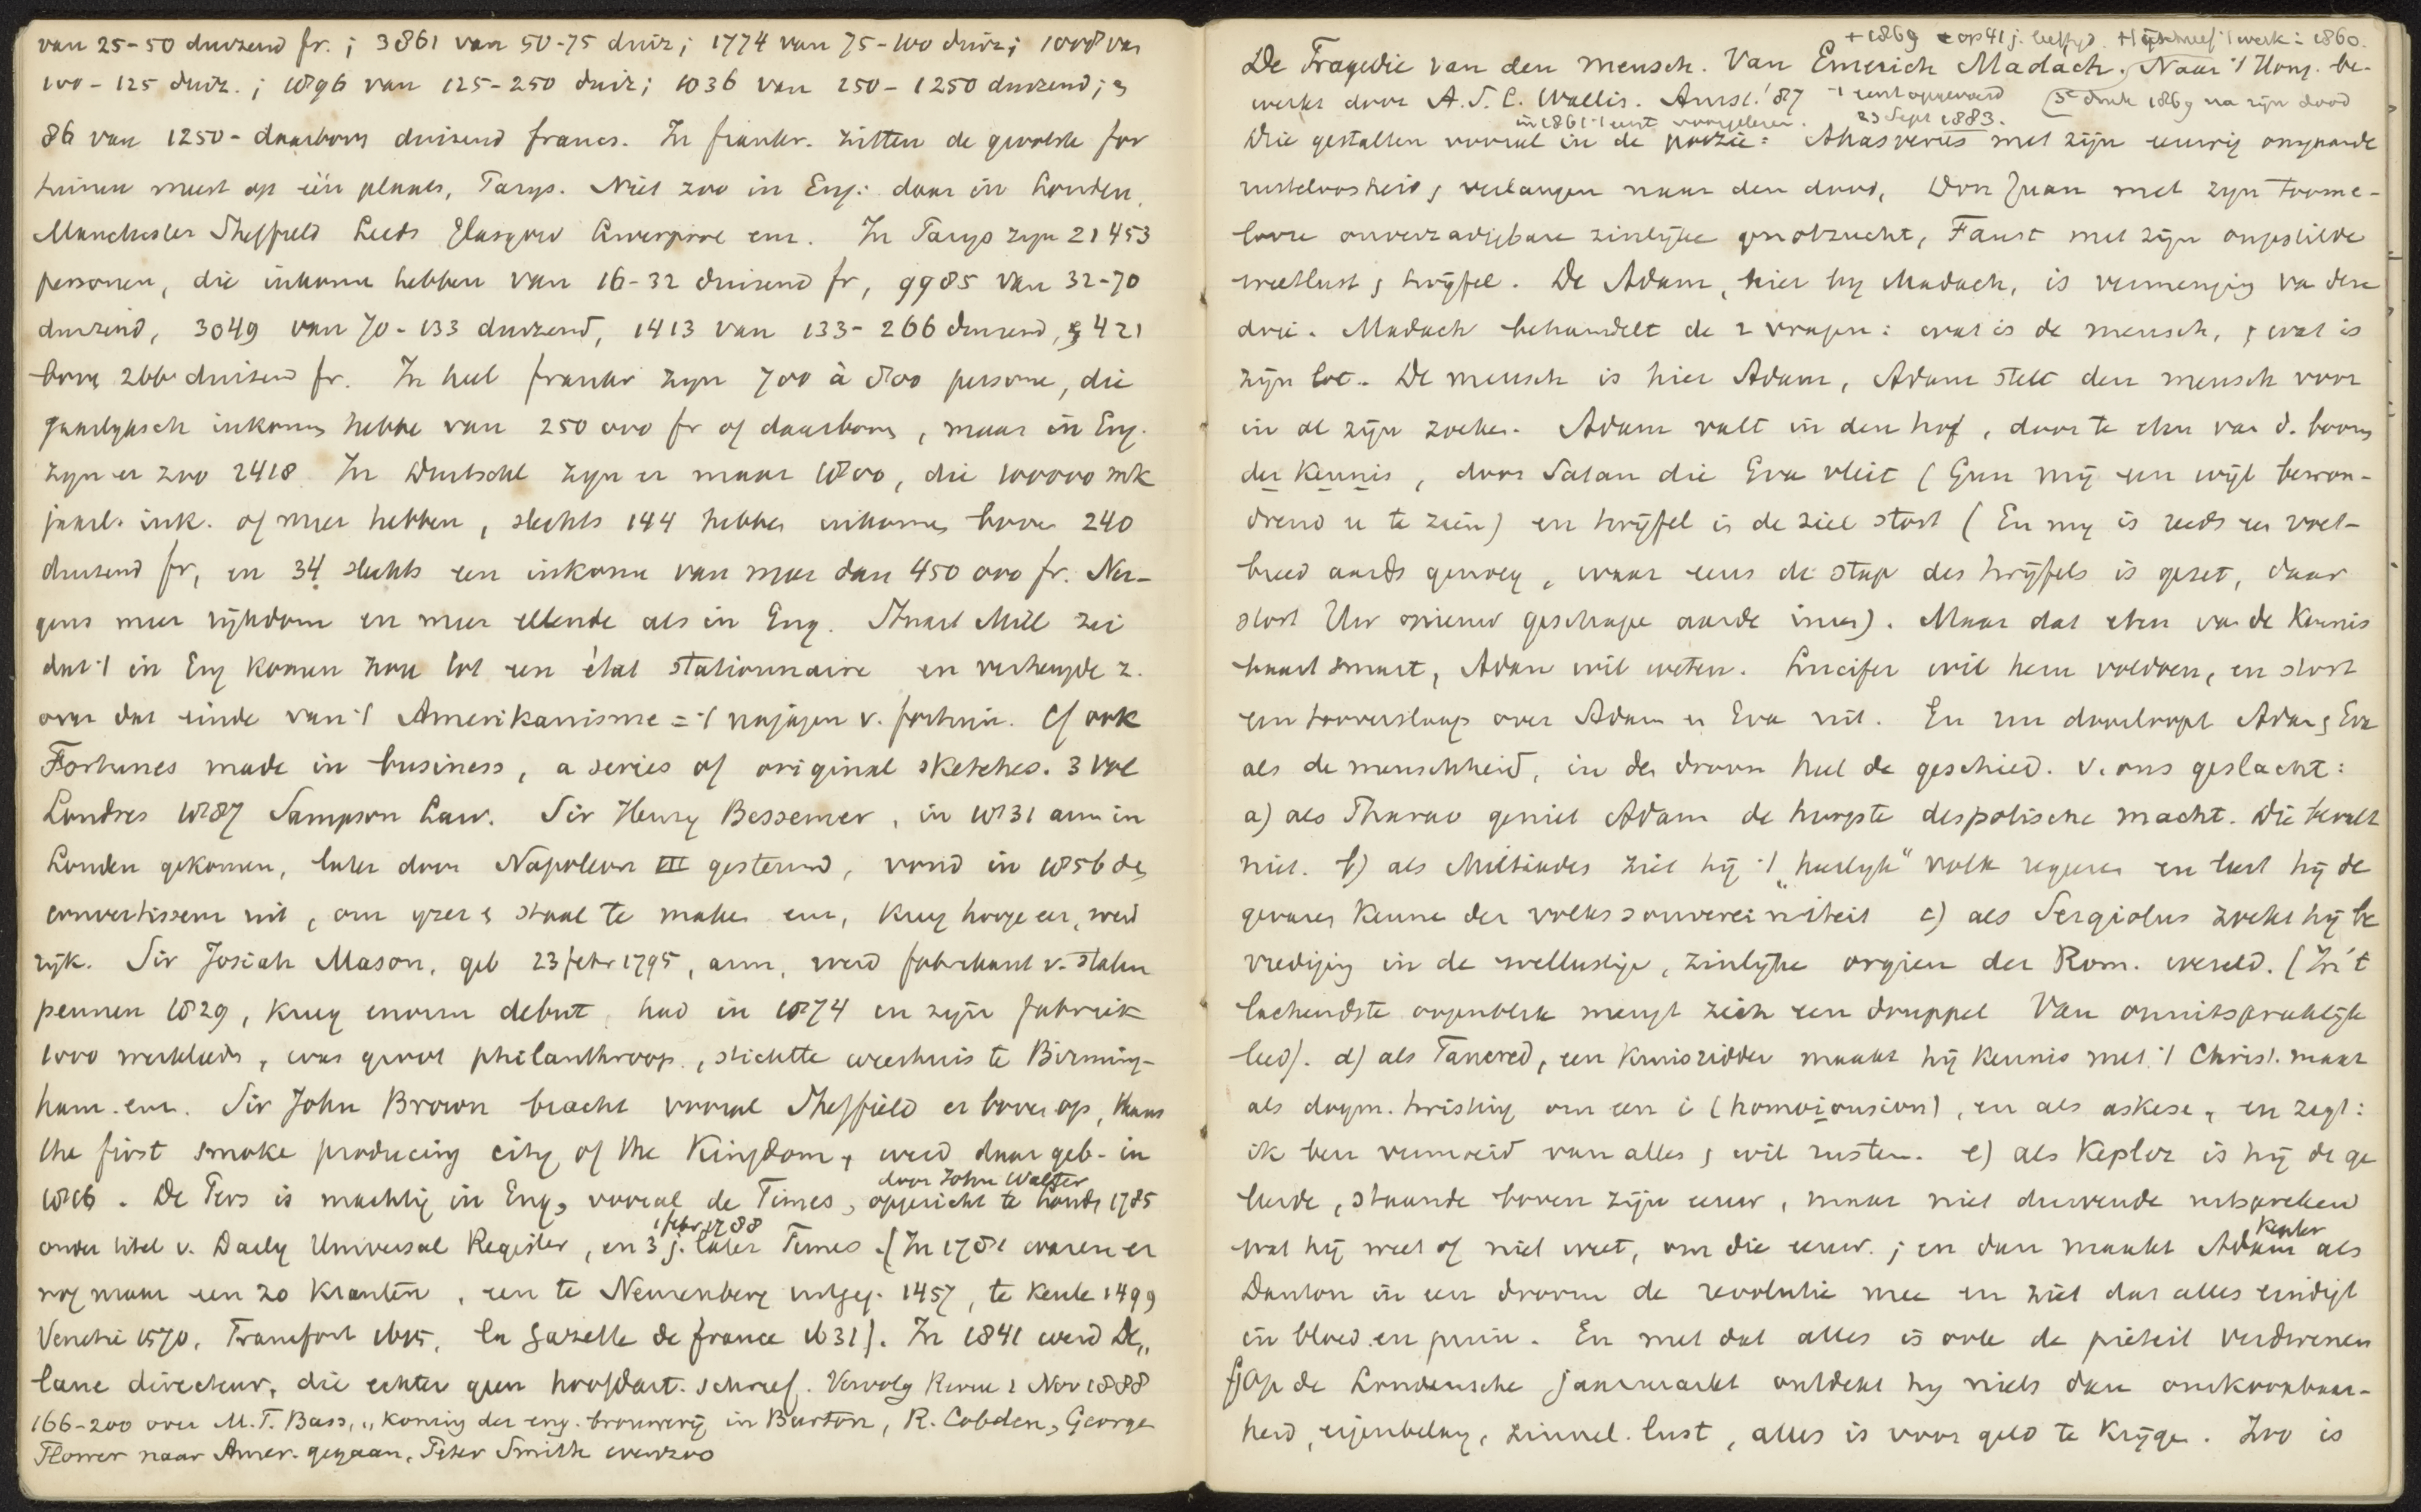 van 25-50 duizend fr.; 3861 van 50-75 duiz; 1774 van 75-100 duiz; 1008 van
100-125 duiz.; 1896 van 125-250 duiz; 1036 van 250-1250 duizend; &
86 van 1250- daarboven duizend francs. In frankr. zitten de groote for
tuinen meest op één plaats, Parys. Niet zoo in Eng: daar in Londen,
Manchester Sheffield Leeds Glasgow Liverpool enz. In Parys zyn 21453
personen, die inkomen hebben van 16-32 duizend fr, 9985 van 32-70
duizend, 3049 van 70-133 duizend, 1413 van 133-266 duizend, & 421
boven 266 duizend fr. In heel frankr zyn 700 à 800 persone, die
jaarlyksch inkomen hebbe van 250 000 fr of daarboven, maar in Eng.
zyn er zoo 2418. In Duitschl zyn er maar 1800, die 100000 mk
jaarl. ink. of meer hebben, slechts 144 hebben inkomen boven 240
duizend fr, en 34 slechts een inkomen van meer dan 450 000 fr. Ner-
gens meer rijkdom en meer ellende als in Eng. Stuart Mill zei
dat 't in Eng komen zou tot een état stationnaire en verheugde z.
over dat einde van 't Amerikanisme = 't najagen v. fortuin. Cf ook
Fortunes made in business, a series of original sketches. 3 vol
Londres 1887 Sampson Law. Sir Henry Bessemer, in 1831 arm in
Londen gekomen, later door Napoleon III gesteund, vond in 1856 de
convertisseur uit, om yzer & staal te maken enz, kreeg hooge eer, werd
rijk. Sir Josiah Mason, geb 23 febr 1795, arm, werd fabrikant v. stalen
pennen 1829, kreeg enorm debiet, had in 1874 in zijn fabriek
1000 werklieden, was groot philanthroop, stichtte weeshuis te Birming-
ham enz. Sir John Brown bracht vooral Sheffield er boven op, thans
the first smoke producing city of the Kingdom, werd daar geb. in
1816. De Pers is machtig in Eng, vooral de Times, opgericht te Londen 1785
door John Walter
onder titel v. Daily Universal Register, en 3 j. later Times. (In 1781 waren er
1 febr 1788
nog maar een 20 kranten, een te Neurenberg uitgeg. 1457, te Keule 1499
Venetie 1570, Francfort 1615, la Gazette de france 1631). In 1841 werd De„
lane directeur, die echter geen hoofdart. schreef. Vervolg Revue 1 Nov 1888
166-200 over M. T. Bass, „koning der eng. brouwerij in Burton, R. Cobden, George
Flower naar Amer. gegaan, Peter Smith evenzoo
+ 1869 op 41 j. leeftyd. Hij schreef 't werk: 1860.
De Tragedie van den mensch. Van Emerich Madach. Naar 't Hong. be-
werkt door A. S. C. Wallis. Amst. '87 't eerst opgevoerd (3e druk 1869 na zijn dood
in 1861 't eerst voorgelezen. 23 Sept 1883.
Drie gestalten vooral in de poëzie: Ahasverus met zijn eeuwig omgaande
rusteloosheid & verlangen naar den dood, Don Juan met zyn toome-
looze onverzadigbare zinlijke genotzucht, Faust met zijn ongestilde
weetlust & twijfel. De Adam, hier by Madach, is vermenging va deze
drie. Madach behandelt de 2 vragen: wat is de mensch, & wat is
zijn lot. De mensch is hier Adam, Adam stelt den mensch voor
in al zijn zoeken. Adam valt in den hof, door te eten van d. boom
der kennis, door Satan die Eva vleit (Gun mij een wijl bewon-
drend u te zien) en twijfel in de ziel stort (En my is reeds een voet-
breed aards genoeg, waar eens de stap des twijfels is gezet, daar
stort Uw opnieuw geschape aarde ineen). Maar dat eten van de kennis
baart smart, Adam wil weten. Lucifer wil hem voldoen, en stort
een tooverslaap over Adam en Eva uit. En nu doorloopt Adam & Eva
als de menschheid, in den droom heel de geschied. v. ons geslacht:
a) als Pharao geniet Adam de hoogste despotische macht. Die bevalt
niet. b) als Miltiades ziet hij 't „heerlyk" volk regeren en leert hij de
gevaren kennen der volkssouvereiniteit c) als Sergiolus zoekt hij be
vrediging in de wellustige, zinlijke orgien der Rom. wereld. (In 't
lachendste oogenblik mengt zich een druppel Van onuitspreeklijk
leed). d) als Tancred, een kruisridder maakt hij kennis met 't Christ. maar
als dogm. twisting om een i (homoiousion), en als askese, en zegt:
ik ben vermoeid van alles & wil rusten. e) als Kepler is hij de ge
leerde, staande boven zijn eeuw, maar niet durvende uitspreken
wat hij weet of niet weet, om die eeuw.; en dan maakt Adam als
Kepler
Danton in een droom de revolutie mee en ziet dat alles eindigt
in bloed en puin. En met dat alles is ook de pieteit verdwenen
f) Op de Londensche jaarmarkt ontdekt hy niets dan omkoopbaar-
heid, eigenbelang, zinnel. lust, alles is voor geld te krijge. Zoo is